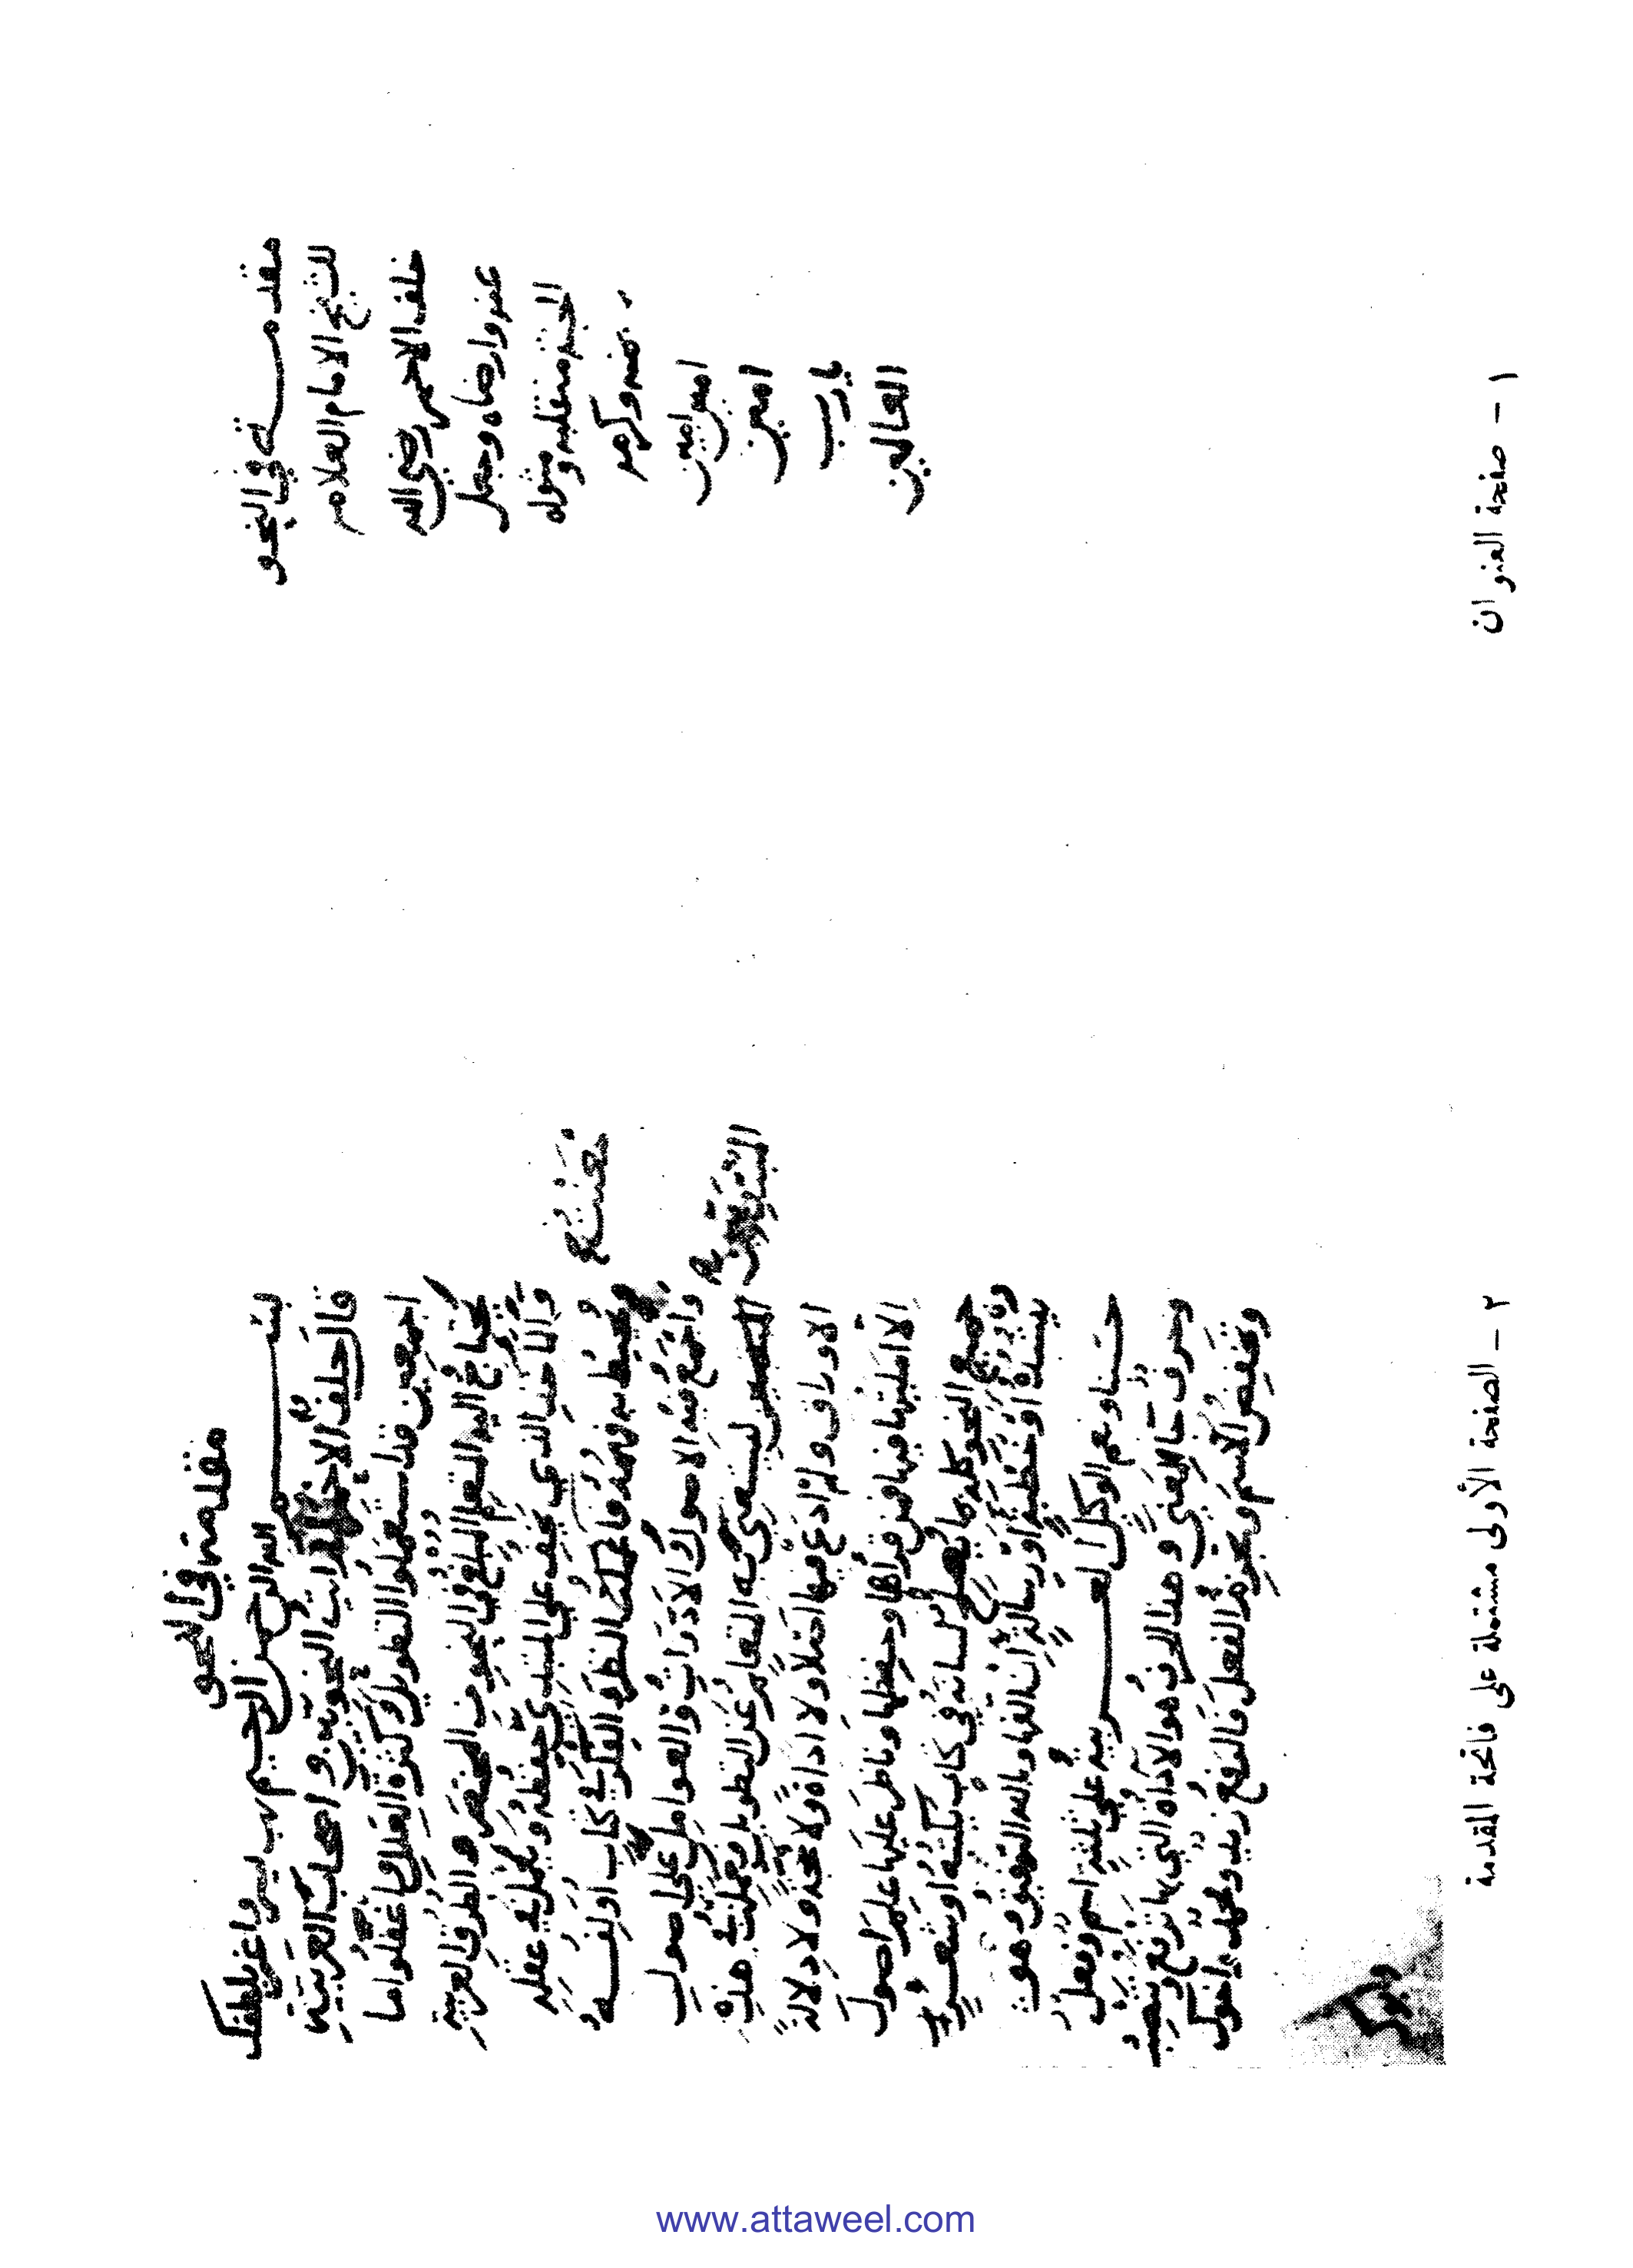 مقدمـــــة في النحو
للشيخ الامام العلامه
خلف الاحمر رضي الله
عنه وارضاه وجعل
الجنة منقلبه ومثواه
بمنه وكرمه
امين امين
امين
يارب
العالمين
١ - صفحة العنوان
مقدمة في النحو
بســـــم الله الرحمن الرحيم رب يسر واعن بلطفك
قال خلف الاحمر لما رايت النحويين واصحاب العربية
اجمعين قد استعملوا التطويل وكثرة العلل واغفلوا ما
يحتاج اليه المتعلم المتبلغ في النحو من المختصر والطرق العربية
والمأخذ الذي يخف على المبتدي حفظه ويعمل في عقله
ويحيط به فهمه فامعنت النظر والفكر في كتاب اولفـــه
معنت
واجمع فيه الاصول والادوات والعوامل على اصول
المبتدئين
ليستغني به المتعلم عن التطويل فعملت هذه
الاوراق ولم ادع فيها اصلا ولا اداة ولا حجة ولا دلالة
الا امليتها فيها فمن قرأها وحفظها وناظر عليها علم اصول
جميع النحو كله مما يصلح لسانه في كتاب يكتبه او شعـــر
ينشده او خطبة او رسالة ان الفها وبالله التوفيق وهو
حسبنا ونعم الوكيل العـــــربية على ثلثة اسم وفعل
وحرف جا لمعنى وهذا الحرف هو الاداة التي بها ترفع وتنصب
وتخفض الاسم وتجزم الفعل فالرفع زيد ومحمد واخوك
وابوك
٢ - الصفحة الأولى مشتملة على فاتحة المقدمة
www.attaweel.com